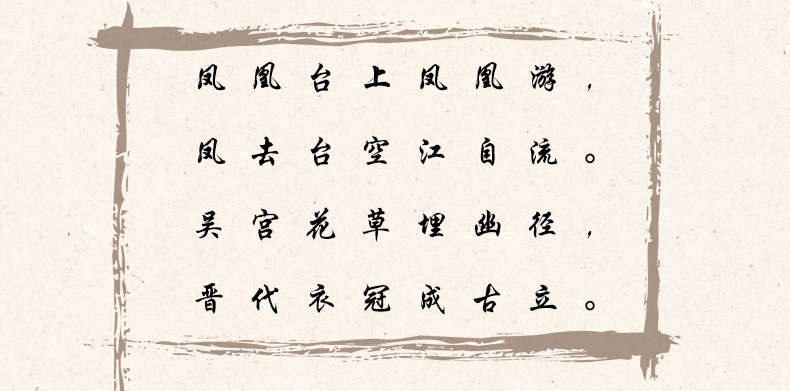 凤凰台上凤凰游，
凤去台空江自流。
吴宫花草埋幽径，
晋代衣冠成古立。